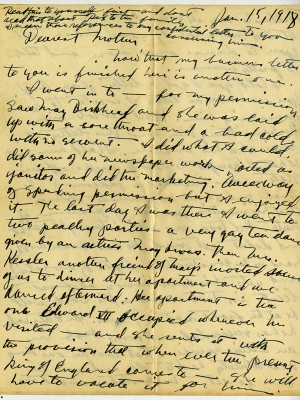 Read this to yourself first and don't
read that about to the family
I mean those references to any confidential letter to you
concerning him.
Jan. 15, 1918
Dearest Mother
Now that my business letter
to you is finished here is another one.
I went in to for my permission
Saw May Birkhead and she was laid
up with a sore throat and a bad cold
with no servant. I did what I could,
did some of her newspaper work, acted as
janitor and did her marketing. A queer way
of spending permission but I enjoyed
it. The last day I was there I went to
two peachy parties - a very gay tea dance
given by an actress Then Mrs.
Kessler another friend of May's invited
of us to dinner at her apartment and we
danced afterward. Her apartment is the
one Edward VII occupied whenever he
visited and she rents it with
the provision that when ever the present
King of England comes to she will
have to vacate it for him.